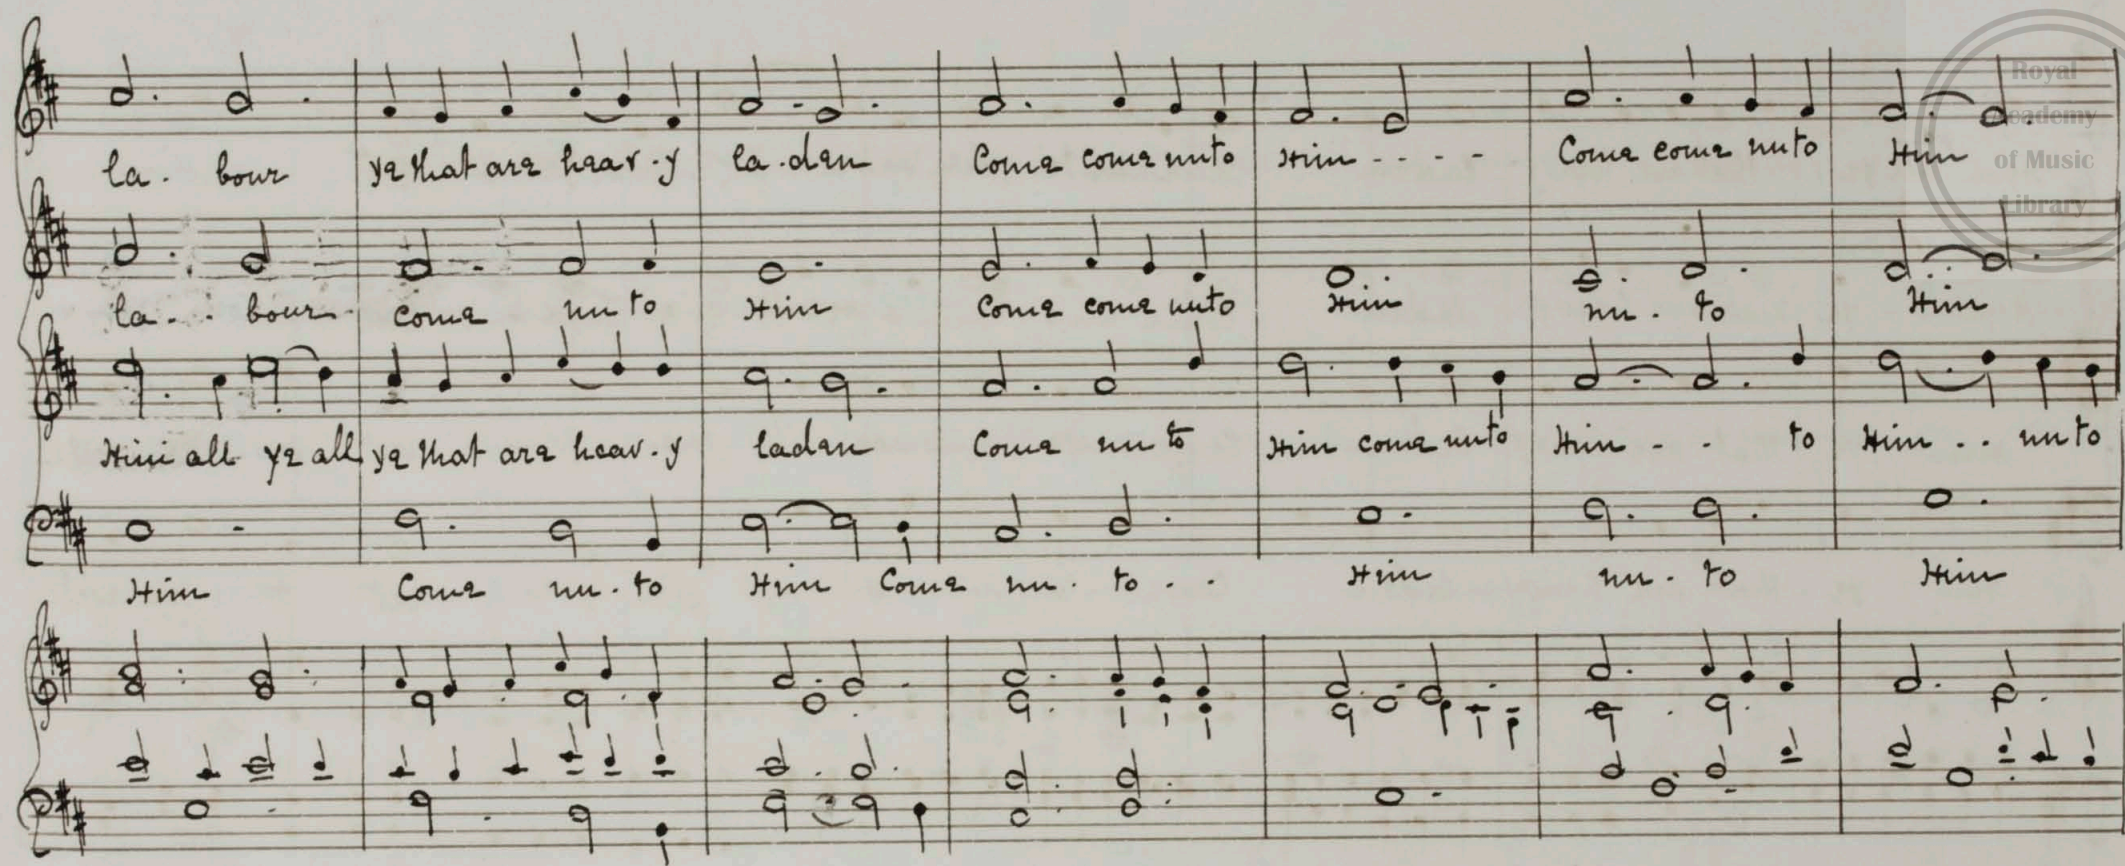 la . bour ye that are heav . y la . den Come come unto Him - - - - Come come unto Him
la . . bour come un to Him Come come unto Him un . to Him
Him all ye all ye that are heav . y laden Come un to Him come unto Him - - to Him . . unto
Him Come un . to Him Come un . to . . Him un . to Him
Royal
Academy
of Music
Library